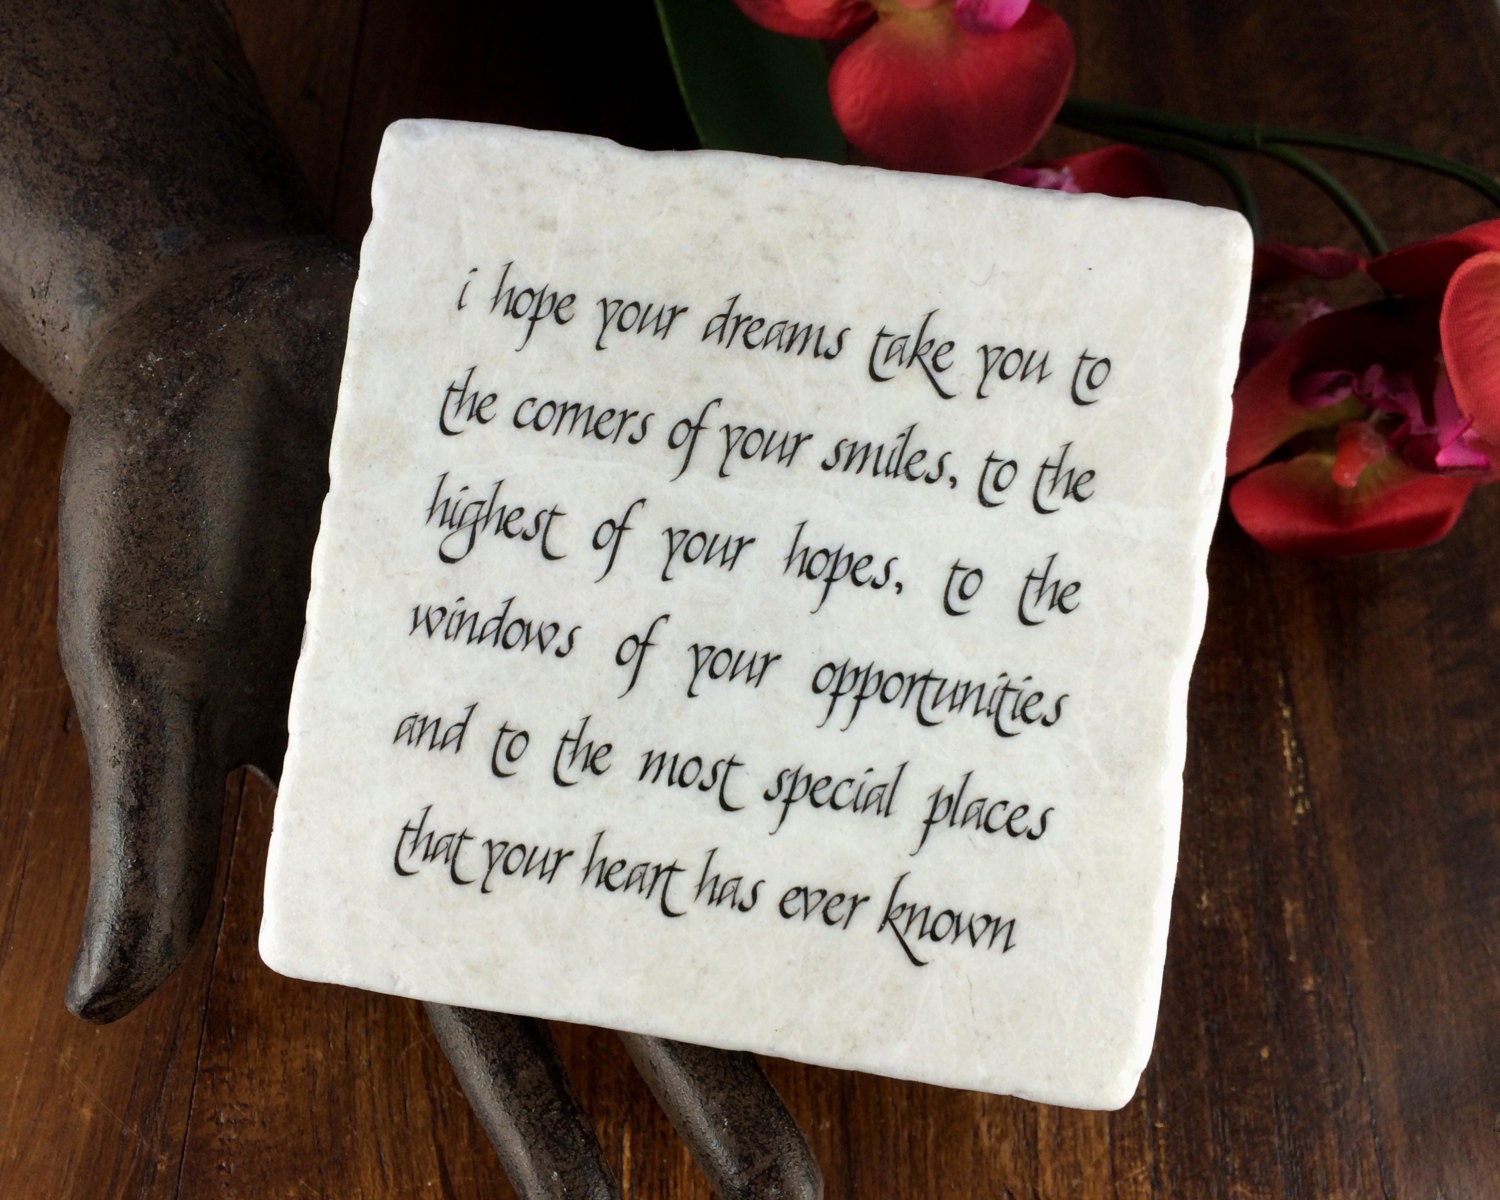 i hope your dreams take you to
the corners of your smiles, to the
highest of your hopes, to the
windows of your opportunities
and to the most special places
that your heart has ever known